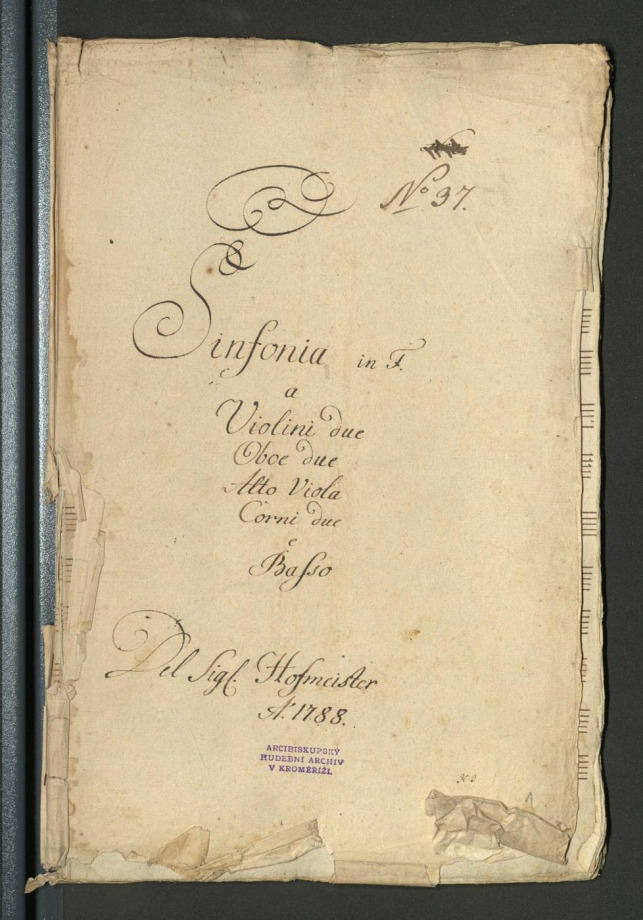 No 37.
Sinfonia in F.
a
Violini due
Oboe due
Alto Viola
Corni due
e
Basso
Del Sigl. Hofmeister
A. 1788.
ARCIBISKUPSKÝ
HUDEBNÍ ARCHIV
V KROMĚŘÍŽI.